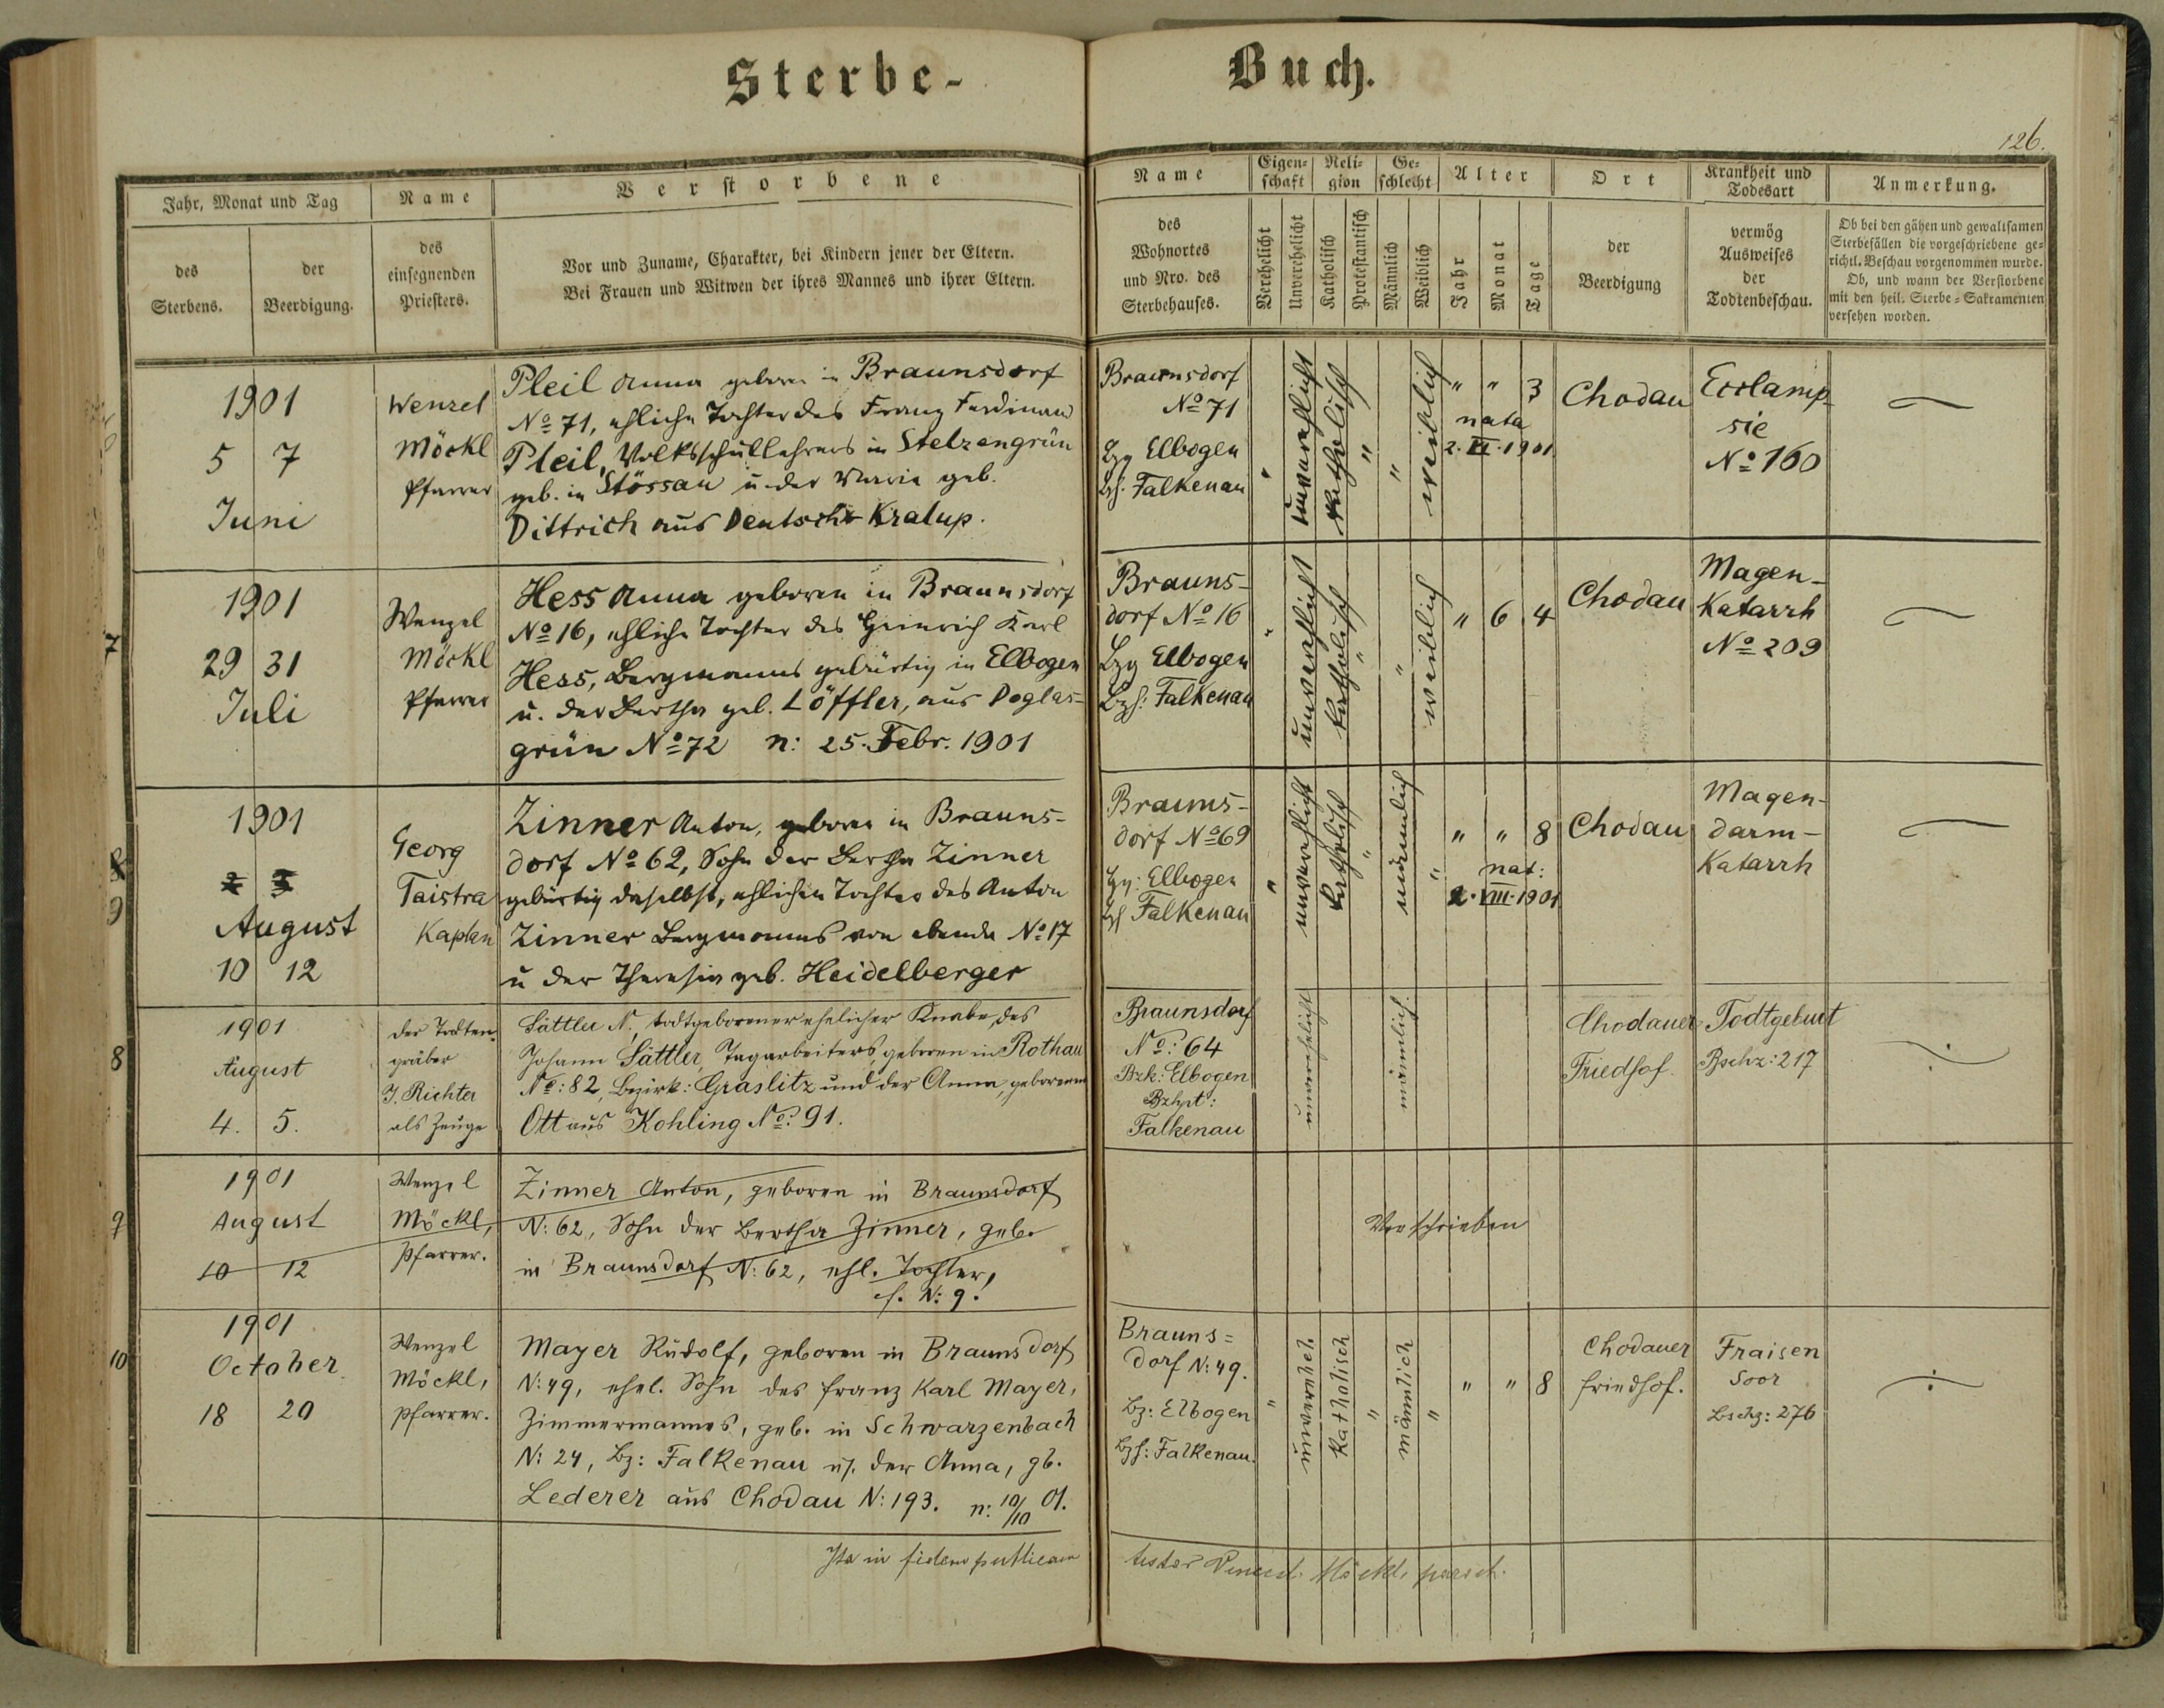 Sterbe-
Buch.
126.
Jahr, Monat und Tag
des Sterbens.
der Beerdigung.
Name
des
einsegnenden
Priesters.
Verstorbene
Vor und Zuname, Charakter, bei Kindern jener der Eltern.
Bei Frauen und Witwen der ihres Mannes und ihrer Eltern.
Name
des
Wohnortes
und Nro. des
Sterbehauses.
Eigen-
schaft
Verehelicht
Unverehelicht
Reli-
gion
Katholisch
Protestantisch
Ge-
schlecht
Männlich
Weiblich
Alter
Jahr
Monat
Tage
Ort
der
Beerdigung
Krankheit und
Todesart
vermög
Ausweises
der
Todtenbeschau.
Anmerkung.
Ob bei den gähen und gewaltsamen
Sterbefällen die vorgeschriebene ge-
richtl. Beschau vorgenommen wurde.
Ob, und wann der Verstorbene
mit den heil. Sterbe-Sakramenten
versehen worden.
1901
5 7
Juni
Wenzel
Möckl
Pfarrer
Pleil Anna geboren in Braunsdorf
No 71, ehliche Tochter des Franz Ferdinand
Pleil, Volksschullehrers in Stelzengrün
geb. in Stössau u. der Maria geb.
Dittrich aus Deutsch Kralup.
Braunsdorf
No 71
Bz Elbogen
Bzh. Falkenau
"
unverehlicht
katholisch
"
"
weiblich
" " 3
nata
2. VI. 1901
Chodau
Ecclamp-
sie
No 160
7
1901
29 31
Juli
Wenzel
Möckl
Pfarrer
Hess Anna geboren in Braunsdorf
No 16, ehliche Tochter des Heinrich Karl
Hess, Bergmanns gebürtig in Elbogen
u. der Bertha geb. Löffler, aus Doglas-
grün No 72 n: 25. Febr. 1901
Brauns-
dorf No 16
Bzg Elbogen
Bzh: Falkenau
"
unverehlicht
katholisch
"
"
weiblich
" 6 4
Chodau
Magen-
Katarrh
No 209
9
1901
August
10 12
Georg
Taistra
Kaplan
Zinner Anton, geboren in Brauns-
dorf No 62, Sohn der Bertha Zinner
gebürtig daselbst, ehlichen Tochter des Anton
Zinner Bergmanns von ebenda No 17
u der Theresia geb. Heidelberger
Brauns-
dorf No 69
Bz: Elbogen
Bzh Falkenau
"
unverehlicht
katholisch
"
männlich
"
" " 8
nat:
2. VIII. 1901
Chodau
Magen-
darm-
Katarrh
8
1901
August
4. 5.
der Todten-
gräber
J. Richter
als Zeuge
Sättler N. todtgeborener ehelicher Knabe, des
Johann Sättler, Tagarbeiters, geboren in Rothau
No: 82, Bezirk: Graslitz und der Anna, geborenen
Ott aus Kohling No: 91.
Braunsdorf
No: 64
Bzk: Elbogen
Bzhpt:
Falkenau
unverehelicht
männlich.
Chodauer
Friedhof.
Todtgeburt
Bschz: 217
9
1901
August
10 12
Wenzel
Möckl,
Pfarrer.
Zinner Anton, geboren in Braunsdorf
N: 62, Sohn der Bertha Zinner, geb.
in Braunsdorf N: 62, ehl. Tochter,
cf. N: 9!
Verschrieben
10
1901
October
18 20
Wenzel
Möckl,
Pfarrer.
Mayer Rudolf, geboren in Braunsdorf
N: 49, ehel. Sohn des Franz Karl Mayer,
Zimmermannes, geb. in Schwarzenbach
N: 24, Bz: Falkenau u. der Anna, gb.
Lederer aus Chodau N: 193. n: 10/10 01.
Brauns=
dorf N: 49.
Bz: Elbogen
Bzh: Falkenau.
"
unverehel.
Katholisch
"
männlich
"
" " 8
Chodauer
Friedhof.
Fraisen
Soor
Bschz: 276
Ita in fidem publicam
testor Möckl, paroch.